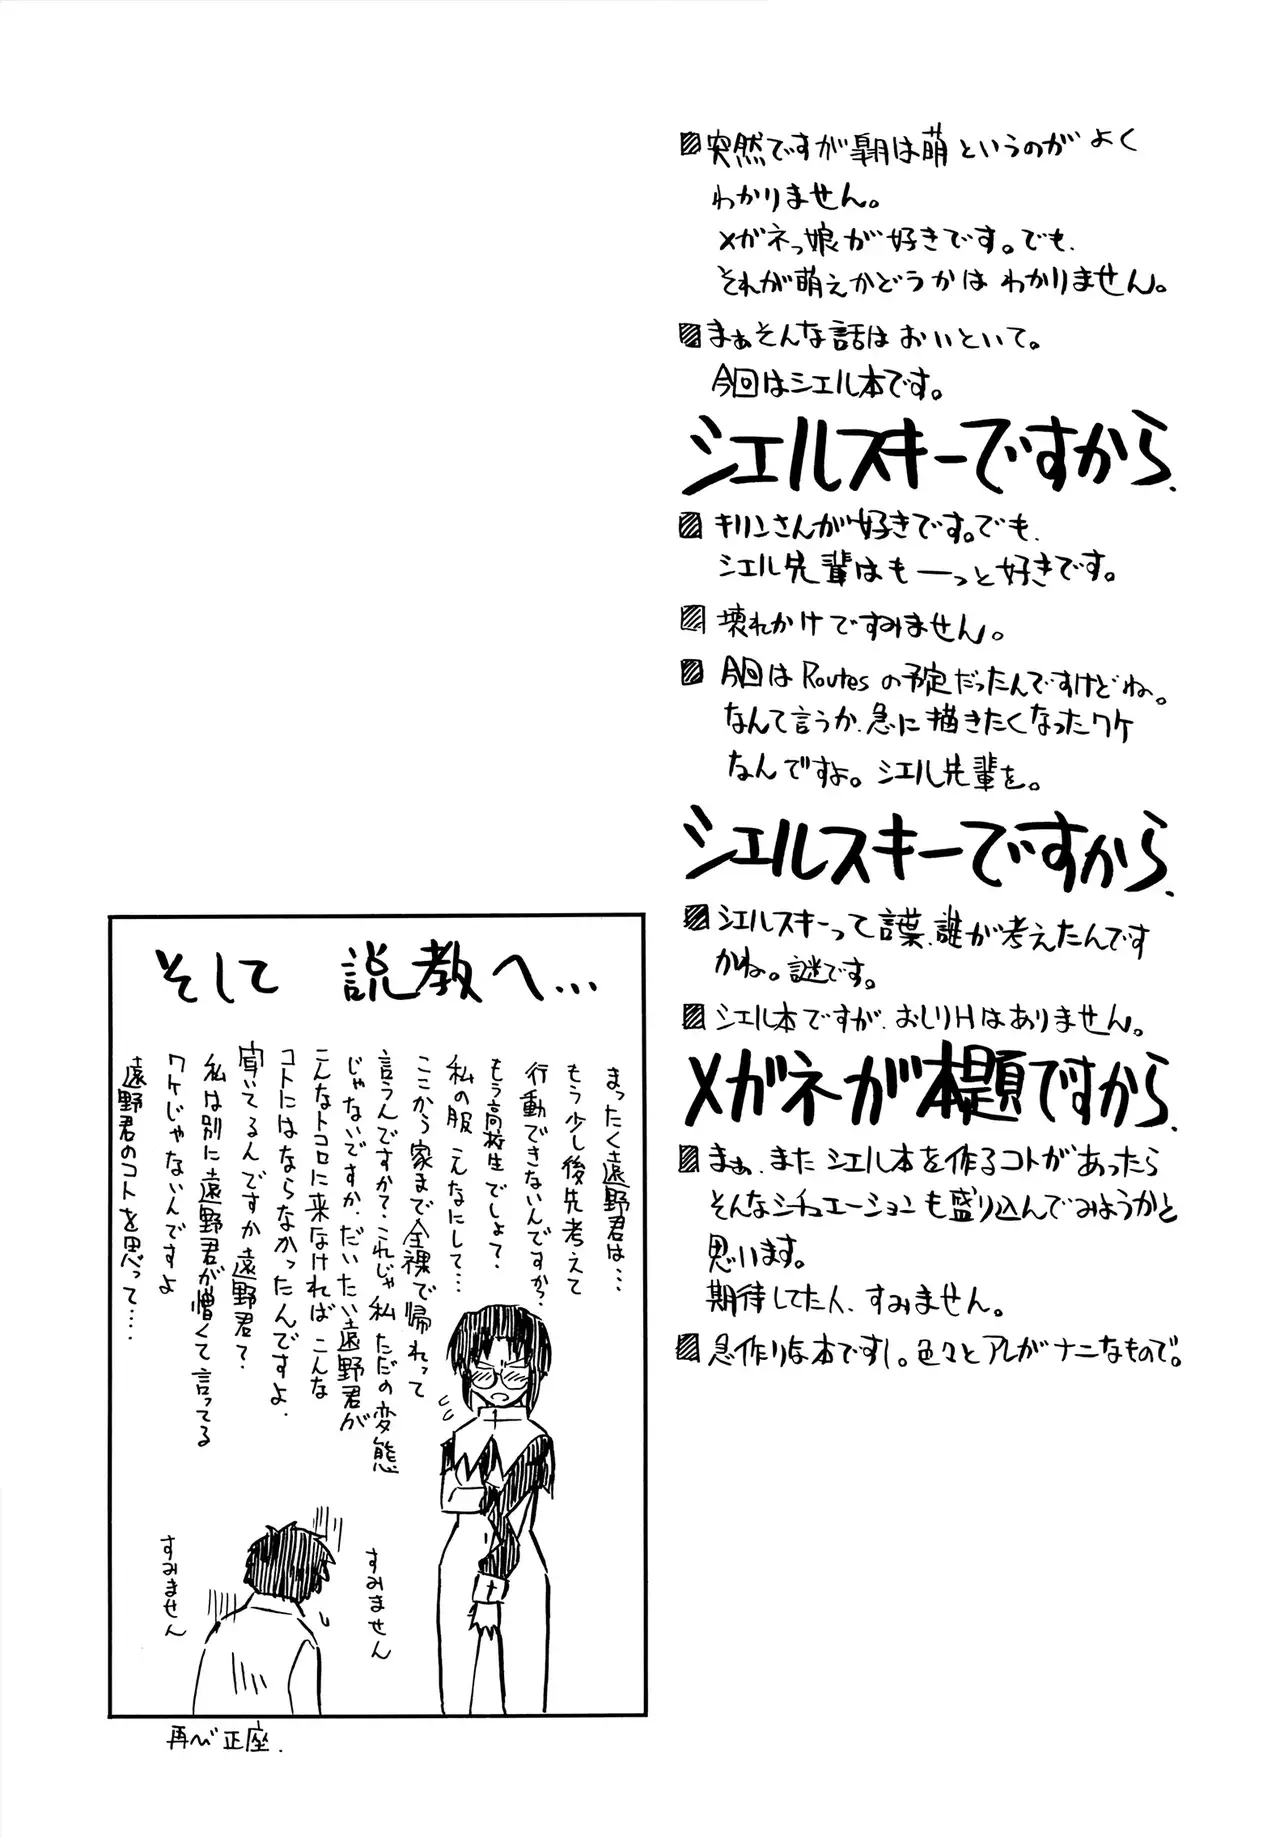 ■突然ですが皐月は萌というのがよく
わかりません。
メガネっ娘が好きです。でも、
それが萌えかどうかはわかりません。
■まぁそんな話はおいといて。
今回はシエル本です。
シエルスキーですから.
■キリンさんが好きです。でも、
シエル先輩はもーっと好きです。
■壊れかけですみません。
■今回はRoutesの予定だったんですけどね。
なんて言うか、急に描きたくなったワケ
なんですよ。シエル先輩を。
シエルスキーですから.
■シエルスキーって言葉、誰が考えたんです
かね。謎です。
■シエル本ですが、おしりHはありません。
メガネが本題ですから.
■まぁ、またシエル本を作るコトがあったら
そんなシチュエーションも盛り込んでみようかと
思います。
期待してた人、すみません。
■急作りな本ですし。色々とアレがナニなもので。
そして 説教へ…
まったく遠野君は…
もう少し後先考えて
行動できないんですか?
もう高校生でしょ?
私の服こんなにして…
ここから家まで全裸で帰れって
言うんですか?これじゃ私ただの変態
じゃないですか、だいたい遠野君が
こんなトコロに来なければこんな
コトにはならなかったんですよ.
聞いてるんですか遠野君?
私は別に遠野君が憎くて言ってる
ワケじゃないんですよ
遠野君のコトを思って….
すみません
すみません
再び正座.